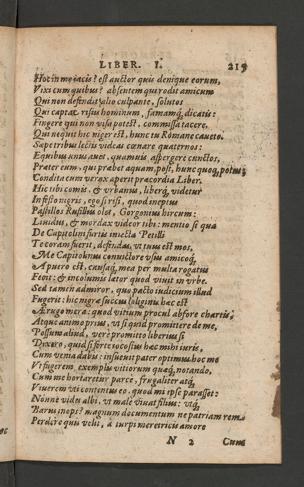 LIBER. I. 215
Hoc in me iacis? est auctor quis denique eorum,
Vixi cum quibus? absentem qui rodit amicum
Qui non defendit alio culpante, solutos
Qui captat risus hominum, famamq́ dicatis:
Fingere qui non visa potest, commissa tacere,
Qui nequit hic niger est, hunc tu Romane caueto.
Sæpe tribus lectis videas cœnare quaternos:
Equibus unus auet, quamuis aspergere cunctos,
Præter eum, qui præbet aquam, post, hunc quoq, potus;
Condita cum verax aperit præcordia Liber.
Hic tibi comis, & vrbanus, liberq́, videtur
Infesto nigris, ego si risi, quod ineptus
Pastillos Rufillus olet, Gorgonius hircum:
Liuidus, & mordax videor tibi: mentio si qua
De Capitolini furtis iniecta Petilli
Te coram fuerit, defendas, vt tuus est mos,
Me Capitolinus conuictore vsus amicoq́,
A puero est, causaq́, mea per multa rogatus
Fecit: & incolumis lætor quod viuit in vrbe.
Sed tamen admiror, quo pacto iudicium illud
Fugerit: hic nigræ succus loliginis hæc est
Ærugo mera: quod vitium procul abfore chartis,
Atque animo prius, vt si quid promittere de me,
Possum aliud, vere promitto liberius si
Dixero, quid si forte iocosius hæc mihi iuris,
Cum venia dabis: insueuit pater optimus hoc me
Vt fugerem exemplis vitiorum quæq́, notando,
Cum me hortaretur parce, frugaliter atq́,
Viuerem vti contentus eo, quod mi ipse parasset:
Nonne vides albi, vt male viuat filius: vtq́,
Barus inops? magnum documentum ne patriam rem
Perdere quis velit, a turpi meretricis amore
N 2 Cum